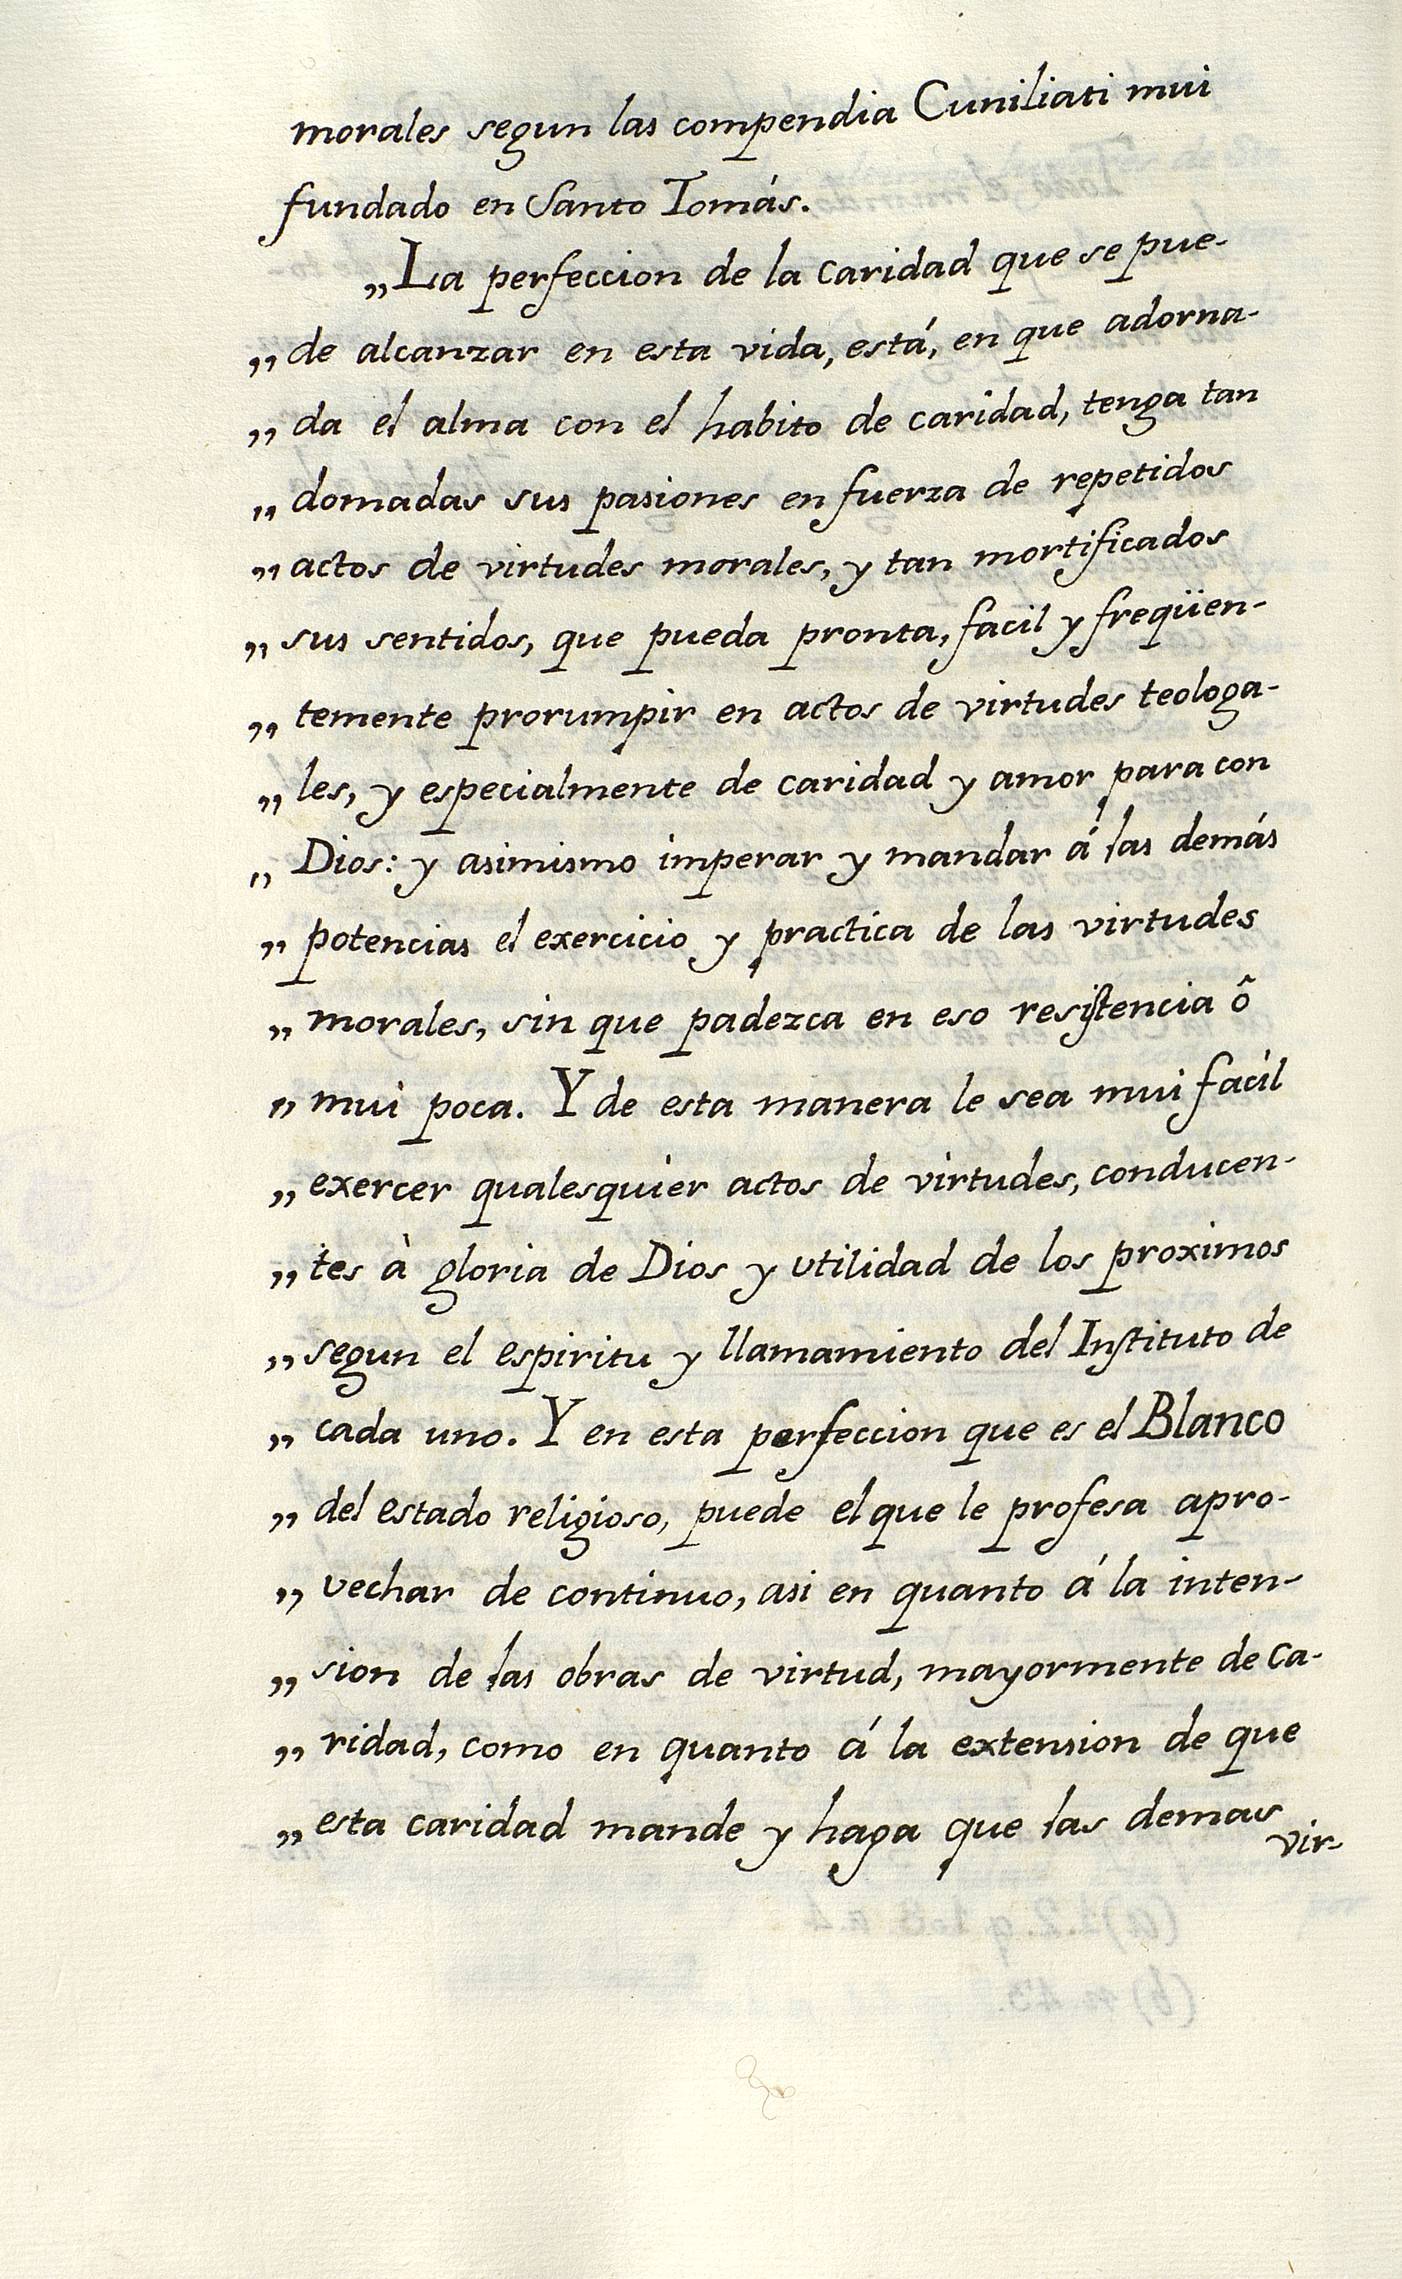 morales segun las compendia Cuniliati mui
fundado en Santo Tomás.
„La perfeccion de la caridad que se pue-
„ de alcanzar en esta vida, está, en que adorna-
„ da el alma con el habito de caridad, tenga tan
„ domadas sus pasiones en fuerza de repetidos
„ actos de virtudes morales, y tan mortificados
„ sus sentidos, que pueda pronta, facil y freqüen-
„ temente prorumpir en actos de virtudes teologa-
„ les, y especialmente de caridad y amor para con
„ Dios: y asimismo imperar y mandar á las demás
„ potencias el exercicio y practica de las virtudes
„ morales, sin que padezca en eso resistencia ô
„ mui poca. Y de esta manera le sea mui facil
„ exercer qualesquier actos de virtudes, conducen-
„ tes à gloria de Dios y utilidad de los proximos
„ segun el espiritu y llamamiento del Instituto de
„ cada uno. Y en esta perfeccion que es el Blanco
„ del estado religioso, puede el que le profesa apro-
„ vechar de continuo, asi en quanto á la inten-
„ sion de las obras de virtud, mayormente de ca-
„ ridad, como en quanto á la extension de que
„ esta caridad mande y haga que las demas
vir-